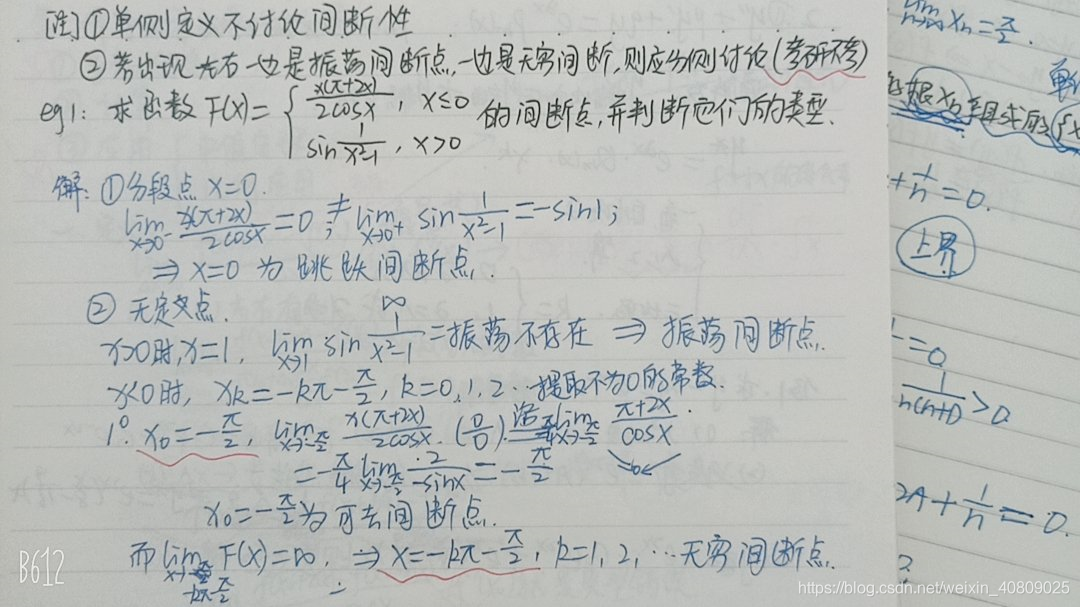 [注]①单侧定义不讨论间断性
②若出现左右一边是振荡间断点,一边是无穷间断,则应分侧讨论(考研不考)
eg1: 求函数 F(x)= { x(π+2x)/2cosx , x≤0 的间断点,并判断它们的类型.
sin 1/(x²-1) , x>0
解: ①分段点 x=0.
lim x→0⁻ x(π+2x)/2cosx =0 ≠ lim x→0⁺ sin 1/(x²-1) =-sin1;
⇒ x=0 为跳跃间断点.
② 无定义点.
x>0时, x=1, lim x→1 sin 1/(x²-1) =振荡不存在 ⇒ 振荡间断点.
∞
x<0时, xk=-kπ-π/2, k=0,1,2…提取不为0的常数.
1° x₀=-π/2, lim x→-π/2 x(π+2x)/2cosx (0/0) 洛 -π/4 lim x→-π/2 π+2x/cosx .
= -π/4 lim x→-π/2 2/-sinx = -π/2
x₀=-π/2为可去间断点.
而 lim x→-kπ-π/2 F(x)=∞, ⇒ x=-kπ-π/2, k=1,2,…无穷间断点.
lim xn=π/2.
+1/n=0.
上界
=0
1/n(n+1)>0
2A+1/n=0.
?
B612
https://blog.csdn.net/weixin_40809025